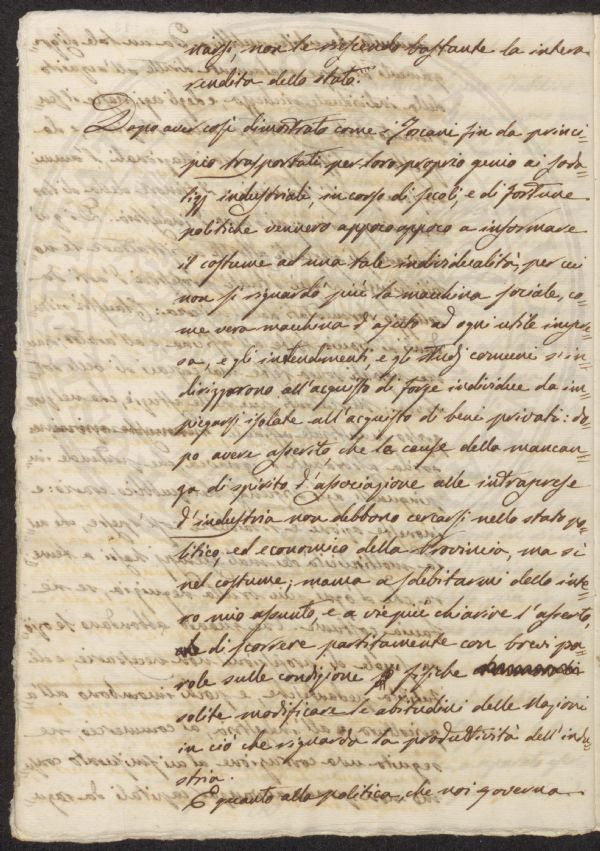 narsi, non le essendo bastante la intera
rendita dello stato.
Dopo aver così dimostrato come i Toscani fin da princi=
pio trasportati per loro proprio genio ai soda=
lizj industriali, in corso di secoli, e di fortune
politiche vennero appoco appoco a informare
il costume ad una tale individualità, per cui
non si riguardò più la macchina sociale, co=
me vera macchina d'ajuto ad ogni utile impre=
sa, e gli intendimenti, e gli studj comuni s'in=
dirizzarono all'acquisto di forze individue da im=
piegarsi isolate all'acquisto di beni privati: do=
po avere asserito che la cause della mancan=
za di spirito d'associazione alle intraprese
d'industria non debbono cercarsi nello stato po=
litico, ed economico della Provincia, ma sì
nel costume; manca a sdebitarmi dello inte=
ro mio assunto, e a viepiù chiarire l'asserto,
di scorrere partitamente con brevi pa=
role sulle condizioni fisiche
solite modificare le abitudini delle Nazioni
in ciò che riguarda la produttività dell'indu=
stria.
E quanto alla politica, che noi governa